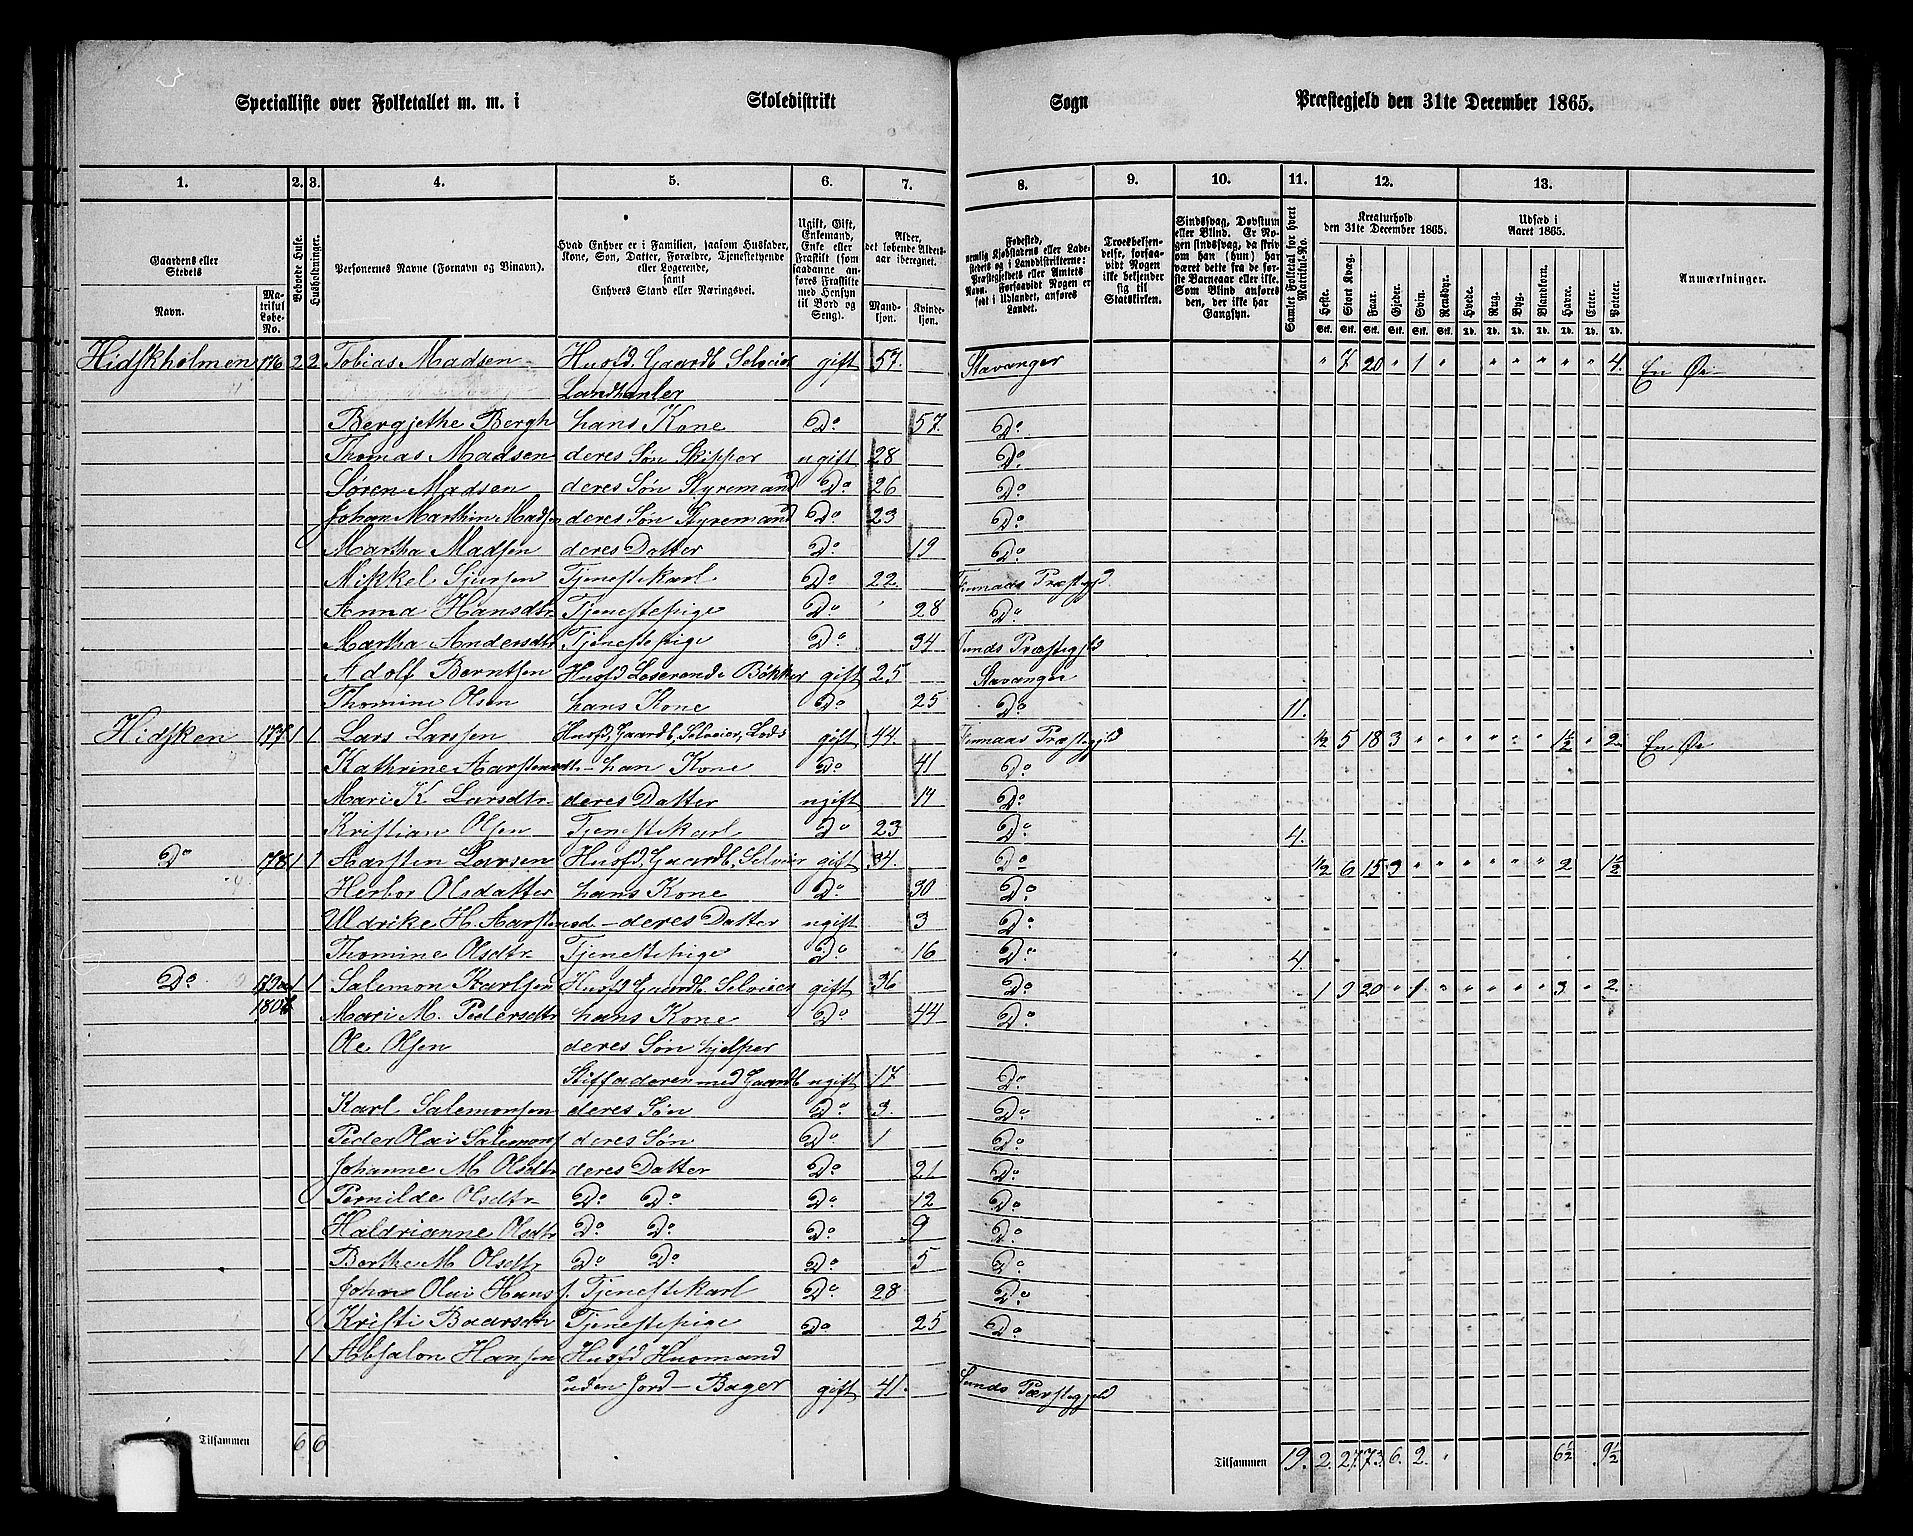 Specialliste over Folketallet m. m. i Skoledistrikt Sogn Præstegjeld den 31te December 1865.
1. 2. 3. 4. 5. 6. 7. 8. 9. 10. 11. 12. 13.
Gaardens eller Stedets
Navn. Matrikul Løbe-No.
Beboede Huse.
Husholdninger.
Personernes Navne (Fornavn og Tilnavn).
Hvad Enhver er i Familien, saasom Husfader, Kone, Søn, Datter, Forældre, Tjenestetyende eller Logerende, samt Enhvers Stand eller Næringsvei.
Ugift, Gift, Enkemand, Enke eller Fraskilt (som saadanne anføres Fraskilte med Hensyn til Bord og Seng).
Alder, det løbende Aldersaar iberegnet.
Mandkjøn. Kvindekjøn.
Fødested, nemlig Kjøbstadens eller Ladestedets og i Landdistrikterne: Præstegjeldets eller Amtets Navn. Forsaavidt Nogen er født i Udlandet, anføres Landet.
Troesbekjendelse, forsaavidt Nogen ikke bekjender sig til Statskirken.
Sindssvag, Døvstum eller Blind. Er Nogen sindssvag, da skrives om han (hun) har været dette fra de første Barneaar eller ikke. Som Blind anføres den, der ikke har Gangsyn.
Samlet Folketal for hvert Matrikul-No.
Kreaturhold den 31te December 1865.
Heste. Stort Kvæg. Faar. Gjeder. Svin. Rensdyr.
Udsæd i Aaret 1865.
Hvede. Rug. Byg. Blandkorn. Havre. Erter. Poteter.
Anmærkninger.
Hidskholmen 176 2 2 Tobias Madsen Husfd, Gaardb Selveier gift 57. Stavanger " 7 20 " 1 " " " " " " " 4. En Øe
Landhanler
Bergjethe Bergh hans Kone Do 57. Do
Thomas Madsen deres Søn Skipper ugift 28 Do
Søren Madsen deres Søn Styremand Do 26 Do
Johan Marthin Madsen deres Søn Styremand Do 23 Do
Martha Madsen deres Datter Do 19 Do
Mikkel Sjursen Tjenestekarl Do 22. Finnaas Præstgjd.
Anna Hansdtr Tjenestepige Do 28 Do
Martha Andersdtr Tjenestepige Do 34 Sunds Præstegjld
Adolf Berntsen Husfd Loserende Bøkker gift 25 Stavanger
Thomine Olsen hans Kone Do 25 Do 11.
Hidsken 177 1 1 Lars Larsen Husfd, Gaardb, Selveier, Lods gift 44. Finnaas Præstegjld 1/2 5 18 3 " " " " " " 1 1/2 " 2 En Øe
Kathrine Aarstensdtr- han Kone Do 41 Do
Mari K Larsdtr- deres Datter ugift 14 Do
Kristian Olsen Tjenestekarl Do 23 Do 4.
Do 178 1 1 Aarsten Larsen Husfd, Gaardb, Selveier gift 34. Do 1/2 6 15 3 " " " " " " 2 1 1/2
Herbor Olsdatter hans Kone Do 30 Do
Uldrike H. Aarstensd- deres Datter ugift 3 Do
Thomine Olsdtr- Tjenestepige Do 16 Do 4.
Do 179 1 1 Salemon Karlsen Husfd Gaardb Selveier gift 36 Do 1 9 20 " 1 " " " " " 3 " 2
180 Mari M. Pedersdtr hans Kone Do 44 Do
Ole Olsen deres Søn hjelper
Stiffaderen med Gaardb ugift 17 Do
Karl Salemonsen deres Søn Do 3. Do
Peder Olai Salemons deres Søn Do 1 Do
Johanne M Olsdtr deres Datter Do 21 Do
Pernilde Olsdtr- Do Do Do 12 Do
Haldrianne Olsdtr Do Do Do 9 Do
Berthe M Olsdtr Do Do Do 5 Do
Johan Olai Hans s. Tjenestekarl Do 28 Do
Kristi Baarsdtr Tjenestepige Do 25 Do
1 1 Absalon Hansen Husfd Husmand
uden Jord - Bager gift 41. Sunds Pærstegjeld
Tilsammen 6 6 Tilsammen 19. 2. 27 73. 6. 2. 6 1/2 9 1/2